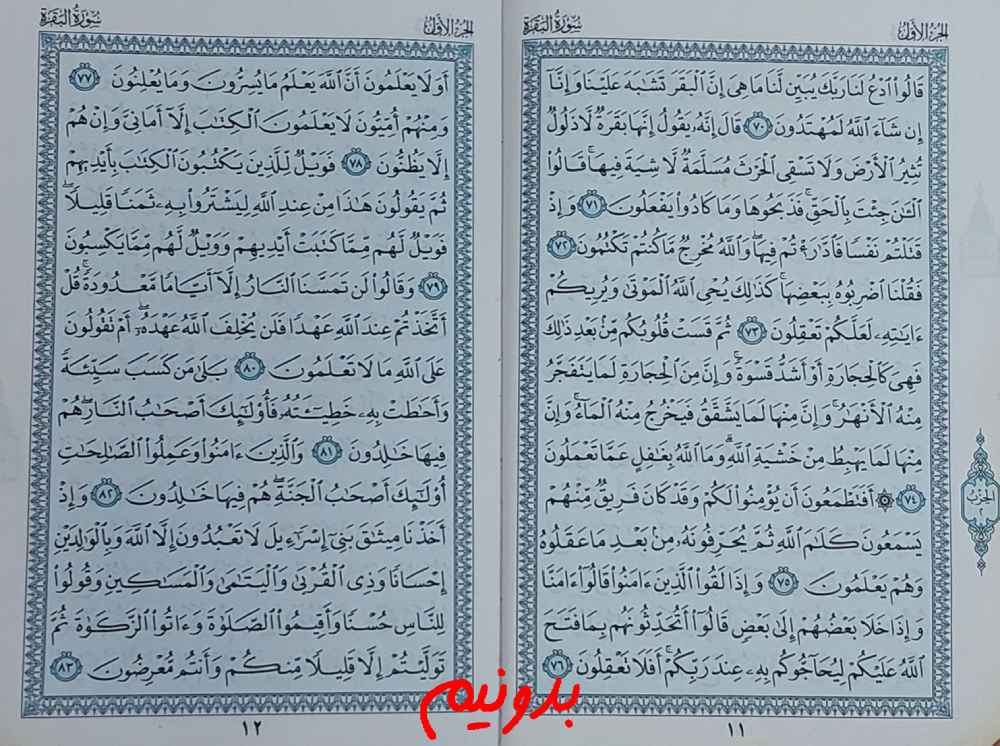 الجزء الأول
سورة البقرة
قَالُوا۟ ٱدْعُ لَنَا رَبَّكَ يُبَيِّن لَّنَا مَا هِىَ إِنَّ ٱلْبَقَرَ تَشَٰبَهَ عَلَيْنَا وَإِنَّآ
إِن شَآءَ ٱللَّهُ لَمُهْتَدُونَ ٧٠ قَالَ إِنَّهُۥ يَقُولُ إِنَّهَا بَقَرَةٌ لَّا ذَلُولٌ
تُثِيرُ ٱلْأَرْضَ وَلَا تَسْقِى ٱلْحَرْثَ مُسَلَّمَةٌ لَّا شِيَةَ فِيهَا ۚ قَالُوا۟
ٱلْـَٰٔنَ جِئْتَ بِٱلْحَقِّ ۚ فَذَبَحُوهَا وَمَا كَادُوا۟ يَفْعَلُونَ ٧١ وَإِذْ
قَتَلْتُمْ نَفْسًا فَٱدَّٰرَْٰٔتُمْ فِيهَا ۖ وَٱللَّهُ مُخْرِجٌ مَّا كُنتُمْ تَكْتُمُونَ ٧٢
فَقُلْنَا ٱضْرِبُوهُ بِبَعْضِهَا ۚ كَذَٰلِكَ يُحْىِ ٱللَّهُ ٱلْمَوْتَىٰ وَيُرِيكُمْ
ءَايَٰتِهِۦ لَعَلَّكُمْ تَعْقِلُونَ ٧٣ ثُمَّ قَسَتْ قُلُوبُكُم مِّنۢ بَعْدِ ذَٰلِكَ
فَهِىَ كَٱلْحِجَارَةِ أَوْ أَشَدُّ قَسْوَةً ۚ وَإِنَّ مِنَ ٱلْحِجَارَةِ لَمَا يَتَفَجَّرُ
مِنْهُ ٱلْأَنْهَٰرُ ۚ وَإِنَّ مِنْهَا لَمَا يَشَّقَّقُ فَيَخْرُجُ مِنْهُ ٱلْمَآءُ ۚ وَإِنَّ
مِنْهَا لَمَا يَهْبِطُ مِنْ خَشْيَةِ ٱللَّهِ ۗ وَمَا ٱللَّهُ بِغَٰفِلٍ عَمَّا تَعْمَلُونَ
٧٤ ۞ أَفَتَطْمَعُونَ أَن يُؤْمِنُوا۟ لَكُمْ وَقَدْ كَانَ فَرِيقٌ مِّنْهُمْ
يَسْمَعُونَ كَلَٰمَ ٱللَّهِ ثُمَّ يُحَرِّفُونَهُۥ مِنۢ بَعْدِ مَا عَقَلُوهُ
وَهُمْ يَعْلَمُونَ ٧٥ وَإِذَا لَقُوا۟ ٱلَّذِينَ ءَامَنُوا۟ قَالُوٓا۟ ءَامَنَّا
وَإِذَا خَلَا بَعْضُهُمْ إِلَىٰ بَعْضٍ قَالُوٓا۟ أَتُحَدِّثُونَهُم بِمَا فَتَحَ
ٱللَّهُ عَلَيْكُمْ لِيُحَآجُّوكُم بِهِۦ عِندَ رَبِّكُمْ ۚ أَفَلَا تَعْقِلُونَ ٧٦
الحزب
٢
١١
الجزء الأول
سورة البقرة
أَوَلَا يَعْلَمُونَ أَنَّ ٱللَّهَ يَعْلَمُ مَا يُسِرُّونَ وَمَا يُعْلِنُونَ ٧٧
وَمِنْهُمْ أُمِّيُّونَ لَا يَعْلَمُونَ ٱلْكِتَٰبَ إِلَّآ أَمَانِىَّ وَإِنْ هُمْ
إِلَّا يَظُنُّونَ ٧٨ فَوَيْلٌ لِّلَّذِينَ يَكْتُبُونَ ٱلْكِتَٰبَ بِأَيْدِيهِمْ
ثُمَّ يَقُولُونَ هَٰذَا مِنْ عِندِ ٱللَّهِ لِيَشْتَرُوا۟ بِهِۦ ثَمَنًا قَلِيلًا ۖ
فَوَيْلٌ لَّهُم مِّمَّا كَتَبَتْ أَيْدِيهِمْ وَوَيْلٌ لَّهُم مِّمَّا يَكْسِبُونَ
٧٩ وَقَالُوا۟ لَن تَمَسَّنَا ٱلنَّارُ إِلَّآ أَيَّامًا مَّعْدُودَةً ۚ قُلْ
أَتَّخَذْتُمْ عِندَ ٱللَّهِ عَهْدًا فَلَن يُخْلِفَ ٱللَّهُ عَهْدَهُۥٓ ۖ أَمْ تَقُولُونَ
عَلَى ٱللَّهِ مَا لَا تَعْلَمُونَ ٨٠ بَلَىٰ مَن كَسَبَ سَيِّئَةً
وَأَحَٰطَتْ بِهِۦ خَطِيٓـَٔتُهُۥ فَأُو۟لَٰٓئِكَ أَصْحَٰبُ ٱلنَّارِ ۖ هُمْ
فِيهَا خَٰلِدُونَ ٨١ وَٱلَّذِينَ ءَامَنُوا۟ وَعَمِلُوا۟ ٱلصَّٰلِحَٰتِ
أُو۟لَٰٓئِكَ أَصْحَٰبُ ٱلْجَنَّةِ ۖ هُمْ فِيهَا خَٰلِدُونَ ٨٢ وَإِذْ
أَخَذْنَا مِيثَٰقَ بَنِىٓ إِسْرَٰٓءِيلَ لَا تَعْبُدُونَ إِلَّا ٱللَّهَ وَبِٱلْوَٰلِدَيْنِ
إِحْسَانًا وَذِى ٱلْقُرْبَىٰ وَٱلْيَتَٰمَىٰ وَٱلْمَسَٰكِينِ وَقُولُوا۟
لِلنَّاسِ حُسْنًا وَأَقِيمُوا۟ ٱلصَّلَوٰةَ وَءَاتُوا۟ ٱلزَّكَوٰةَ ثُمَّ
تَوَلَّيْتُمْ إِلَّا قَلِيلًا مِّنكُمْ وَأَنتُم مُّعْرِضُونَ ٨٣
١٢
بدونیم